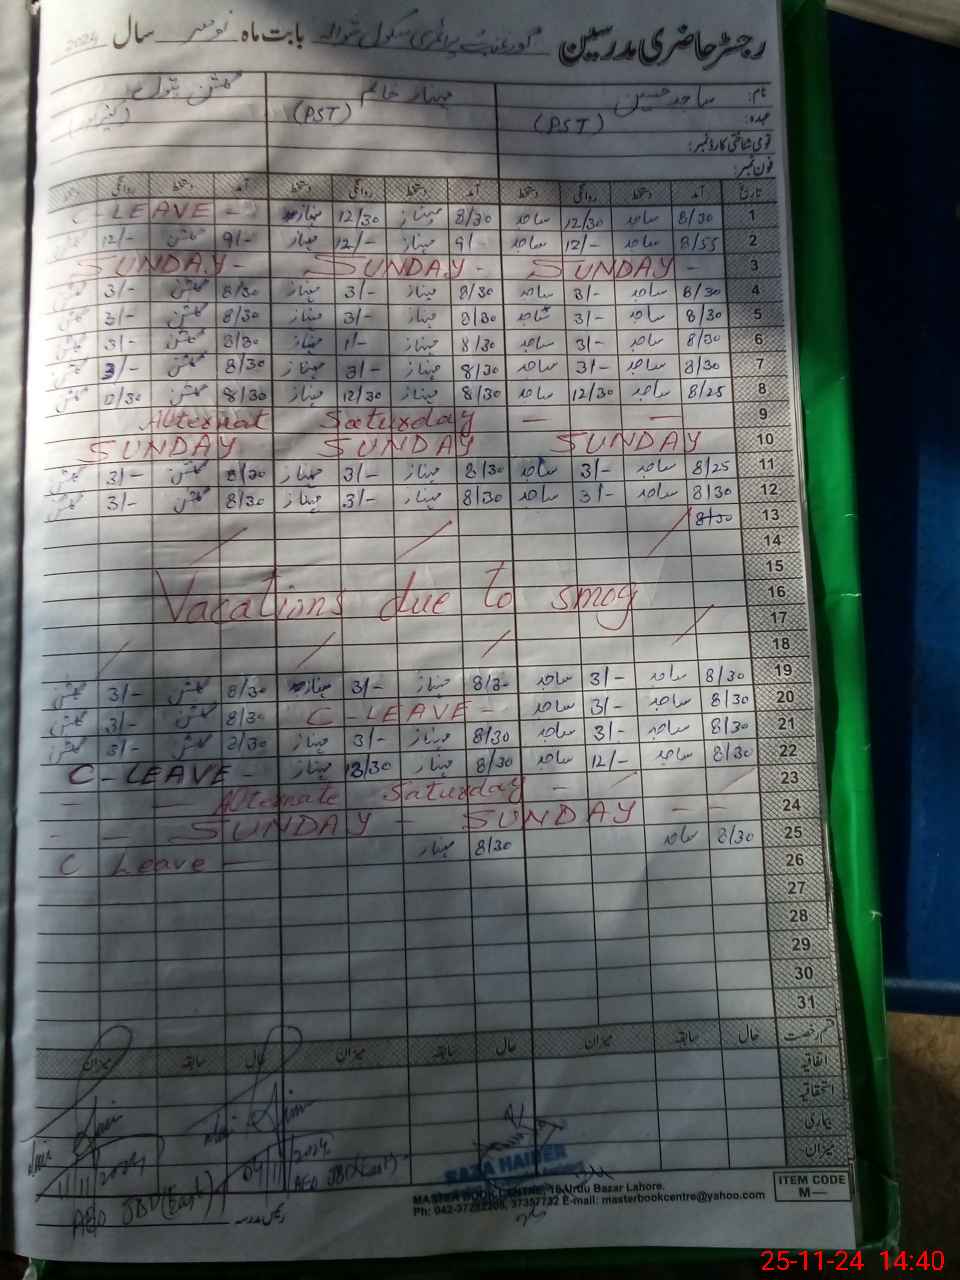 رجسٹر حاضری مدرسین گورنمنٹ پرائمری سکول بابت ماہ نومبر سال 2024
نام: ساجد حسین
عہدہ: (PST) (PST)
قومی شناختی کارڈ نمبر:
فون نمبر:
تاریخ آمد دستخط روانگی دستخط آمد دستخط روانگی دستخط آمد دستخط روانگی دستخط
1 8/30 ساجد 12/30 ساجد 8/30 مہناز 12/30 مہناز C-LEAVE -
2 8/55 ساجد 12/- ساجد 9/- مہناز 12/- مہناز 9/- گلشن 12/- گلشن
3 SUNDAY - SUNDAY - SUNDAY -
4 8/30 ساجد 3/- ساجد 8/30 مہناز 3/- مہناز 8/30 گلشن 3/- گلشن
5 8/30 ساجد 3/- ساجد 8/30 مہناز 3/- مہناز 8/30 گلشن 3/- گلشن
6 8/30 ساجد 3/- ساجد 8/30 مہناز 1/- مہناز 8/30 گلشن 3/- گلشن
7 8/30 ساجد 3/- ساجد 8/30 مہناز 3/- مہناز 8/30 گلشن 3/- گلشن
8 8/25 ساجد 12/30 ساجد 8/30 مہناز 12/30 مہناز 8/30 گلشن 12/30 گلشن
9 Alternat Saturday — —
10 SUNDAY SUNDAY SUNDAY
11 8/25 ساجد 3/- ساجد 8/30 مہناز 3/- مہناز 8/30 گلشن 3/- گلشن
12 8/30 ساجد 3/- ساجد 8/30 مہناز 3/- مہناز 8/30 گلشن 3/- گلشن
13 8/30
14
15
16 Vacations due to smog
17
18
19 8/30 ساجد 3/- ساجد 8/30 مہناز 3/- مہناز 8/30 گلشن 3/- گلشن
20 8/30 ساجد 3/- ساجد C-LEAVE - 8/30 گلشن 3/- گلشن
21 8/30 ساجد 3/- ساجد 8/30 مہناز 3/- مہناز 8/30 گلشن 3/- گلشن
22 8/30 ساجد 12/- ساجد 8/30 مہناز 12/30 مہناز C-LEAVE -
23 — — Alternate Saturday —
24 - - SUNDAY - SUNDAY - -
25 8/30 ساجد 8/30 مہناز C Leave —
26
27
28
29
30
31
قسم رخصت حال سابقہ میزان حال سابقہ میزان حال سابقہ میزان
اتفاقیہ
استحقاقیہ
بیماری
میزان
11/11/2024
AEO JBD(East)
04/11/2024
AEO JBD(East)
RAZA HAIDER
رئیس مدرسہ
MASTER BOOK CENTRE, 16 Urdu Bazar Lahore.
Ph: 042-37232205, 37357732 E-mail: masterbookcentre@yahoo.com
ITEM CODE
M—
25-11-24 14:40